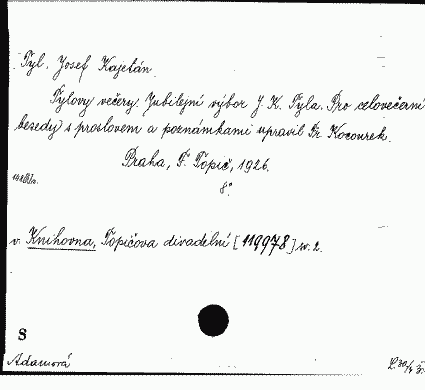 Tyl, Josef Kajetán
Tylovy večery. Jubilejní výbor J. K. Tyla. Pro celovečerní
besedy s proslovem a poznámkami upravil Fr. Kocourek.
Praha, F. Topič, 1926.
8°
v. Knihovna, Topičova divadelní [119978] sv. 2.
S
Adamová